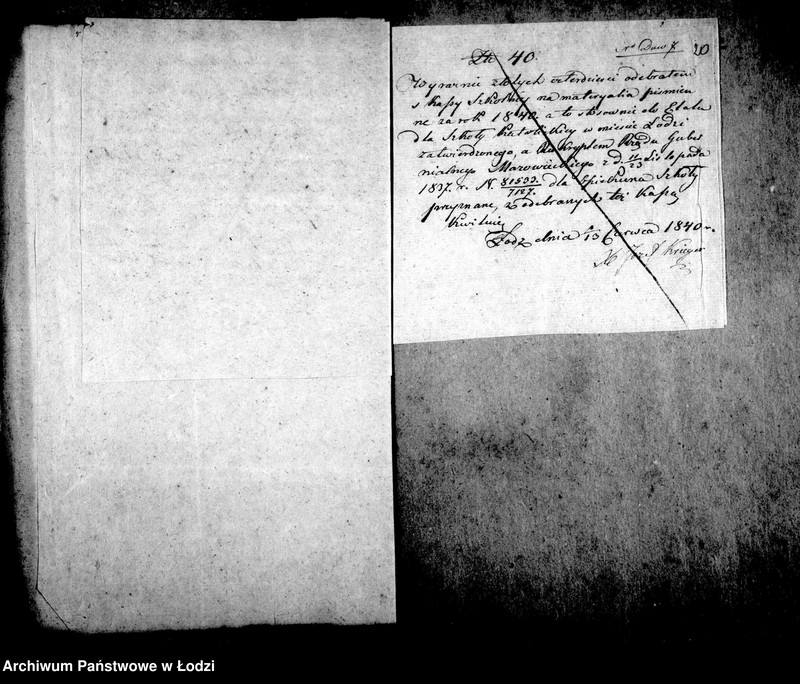 Nro Dow 7 20
Zł. 40.
Wyraźnie złotych czterdzieści odebrałem
z Kassy Szkolnéj na materyalia piśmien
ne za rok 1840 a to stósownie do Etatu
dla Szkoły Katolickiéj w mieście Łodzi
zatwierdzonego, a Reskryptem Rządu Guber
nialnego Mazowieckiego z d. 11/23 Listopada
1837. r. N. 81533/7127. dla Opiekuna Szkoły
przyznane, z odebranych też Kassę
Kwituję
Łodź dnia 13 Czerwca 1840 r.
X Józef Krüger
Archiwum Państwowe w Łodzi